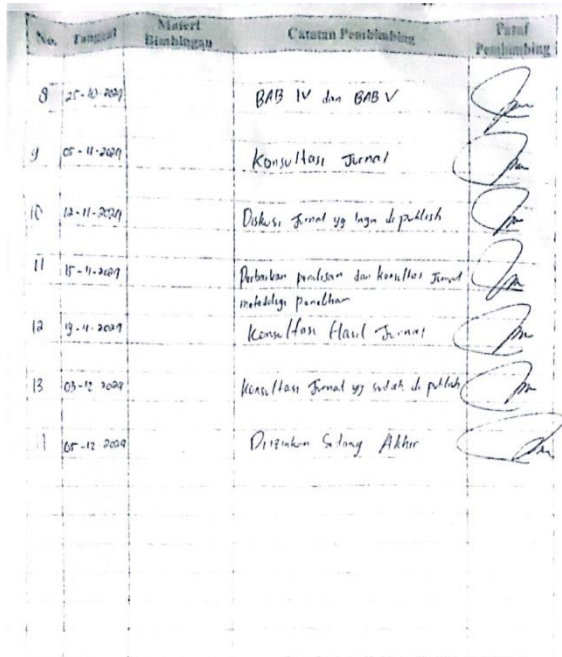 No. Tanggal Materi Bimbingan Catatan Pembimbing Paraf Pembimbing
8 25-10-2024 BAB IV dan BAB V
9 05-11-2024 Konsultasi Jurnal
10 12-11-2024 Diskusi Jurnal yg ingin di publish
11 15-11-2024 Perbaikan penulisan dan konsultasi Jurnal
metodologi penelitian
12 19-11-2024 Konsultasi Hasil Jurnal
13 03-12 2024 Konsultasi Jurnal yg sudah di publish
05-12 2024 Diizinkan Sidang Akhir